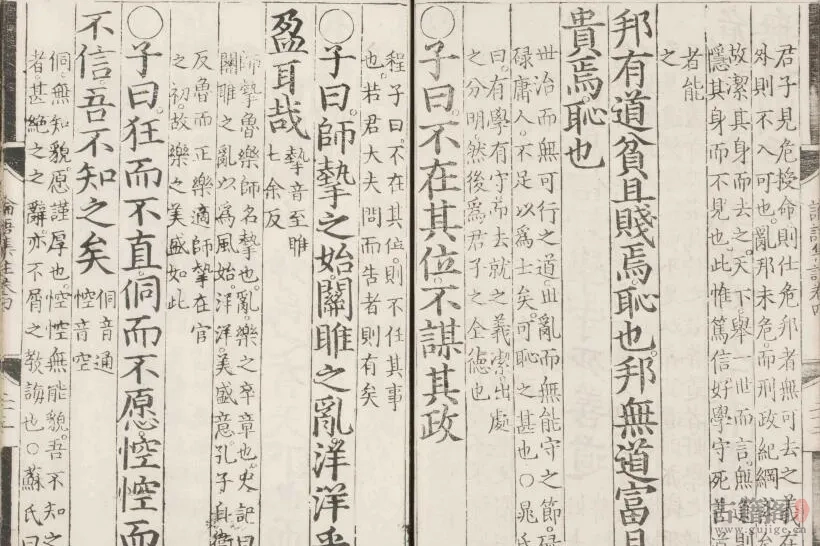 君子見危授命則仕危邦者無可去之義在
外則不入可也。亂邦未危。而刑政紀綱
故潔其身而去之。天下。舉一世而言。無道則
隱其身而不見也。此惟篤信好學守死善道
者能
之
邦有道貧且賤焉。恥也。邦無道富且
貴焉。恥也
世治而無可行之道。世亂而無能守之節。碌
碌庸人。不足以爲士矣。可恥之甚也〇晁氏
曰。有學有守。而去就之義潔。出處
之分明。然後爲君子之全德也
〇子曰。不在其位。不謀其政
程子曰。不在其位。則不任其事
也。若君大夫問而告者則有矣
〇子曰。師摯之始。關雎之亂。洋洋乎
盈耳哉
摯音至雎
七余反
師摯魯樂師名摯也。亂。樂之卒章也。史記曰
關雎之亂以爲風始。洋洋。美盛意。孔子自衛
反魯而正樂。適師摯在官
之初。故樂之美盛如此
〇子曰。狂而不直。侗而不愿。悾悾而
不信。吾不知之矣
侗音通
悾音空
侗。無知貌。愿。謹厚也。悾悾。無能貌。吾不知之
者。甚絕之之辭。亦不屑之教誨也〇蘇氏曰
www.gujige.cn